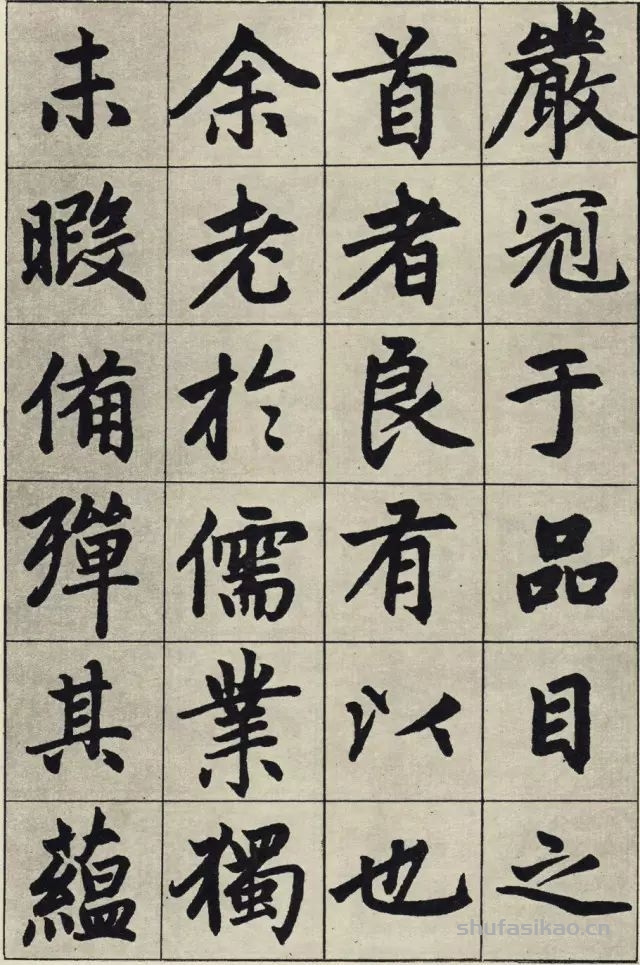 嚴冠于品目之
首者良有以也
余老於儒業獨
未暇備殫其蘊
shufasikao.cn